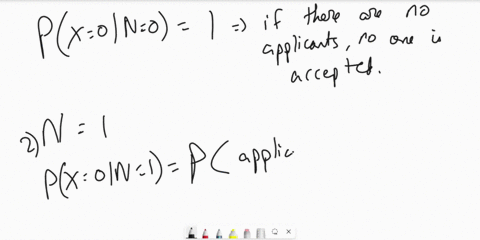 P(X=0|N=0) = 1 => if there are no
applicants, no one is
accepted.
2) N = 1
P(X=0|N=1) = P( applic